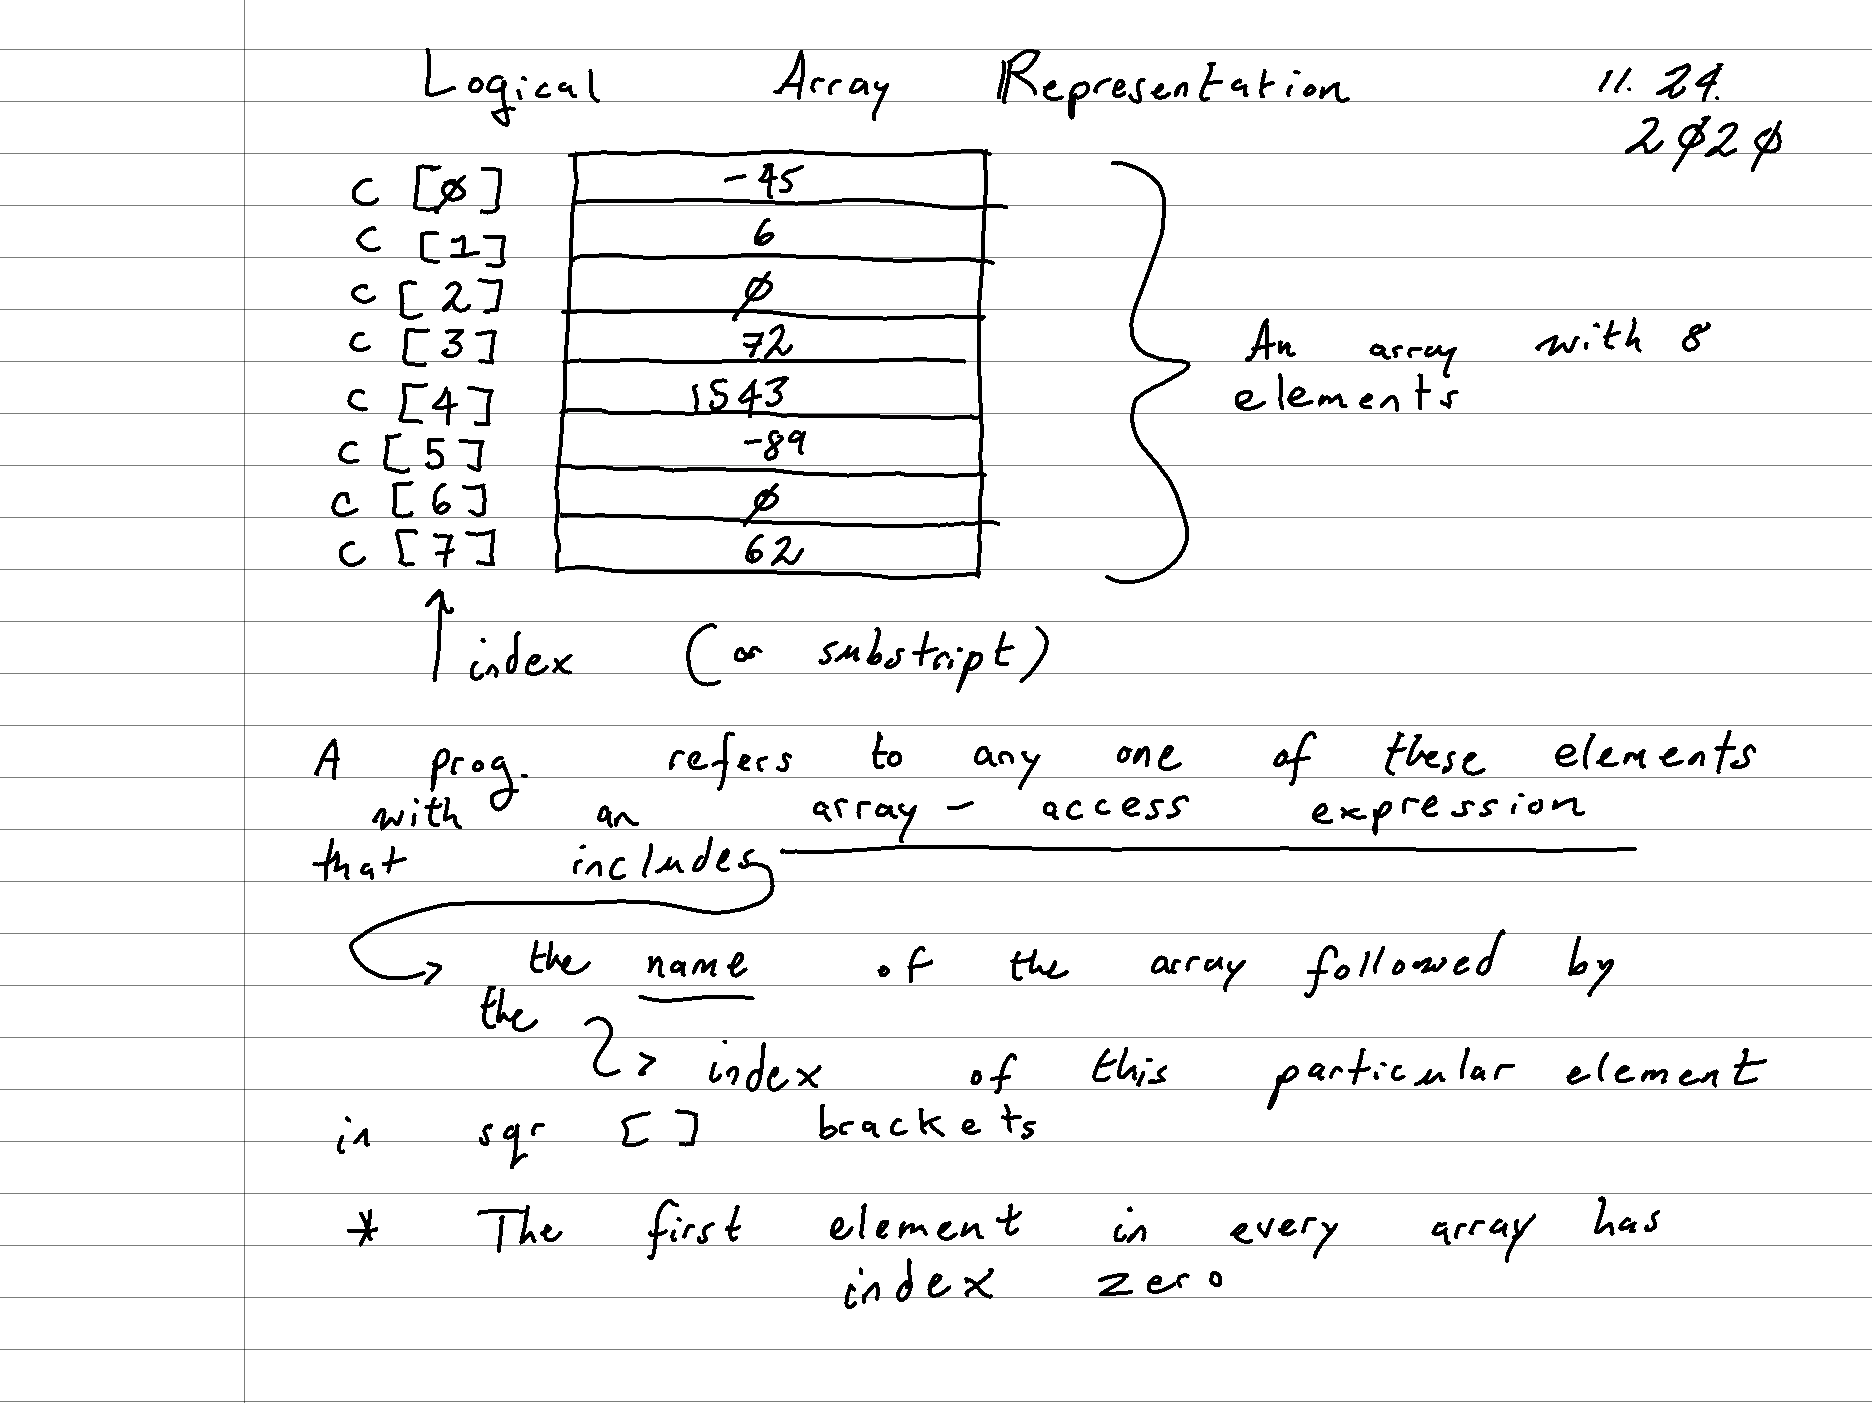 Logical Array Representation 11. 24.
2020
c [0] -45
c [1] 6
c [2] 0
c [3] 72
c [4] 1543
c [5] -89
c [6] 0
c [7] 62
An array with 8
elements
index (or substript)
A prog. refers to any one of these elements
with an array - access expression
that includes
the name of the array followed by
the
index of this particular element
in sqr [ ] brackets
* The first element in every array has
index zero